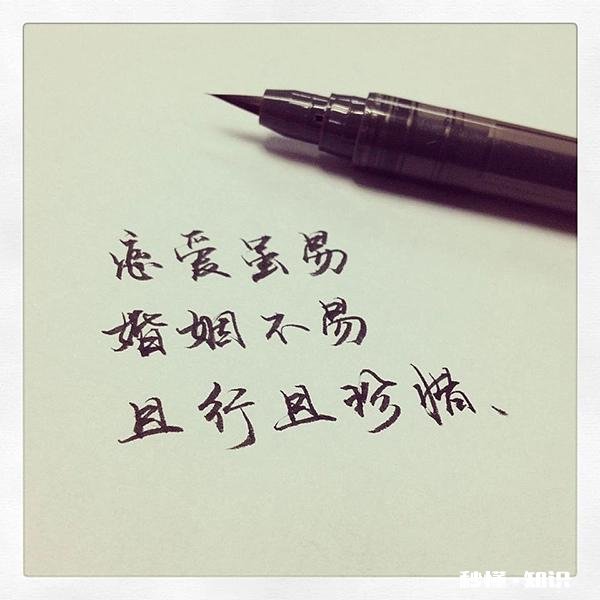 恋爱虽易
婚姻不易
且行且珍惜、
秒懂·知识